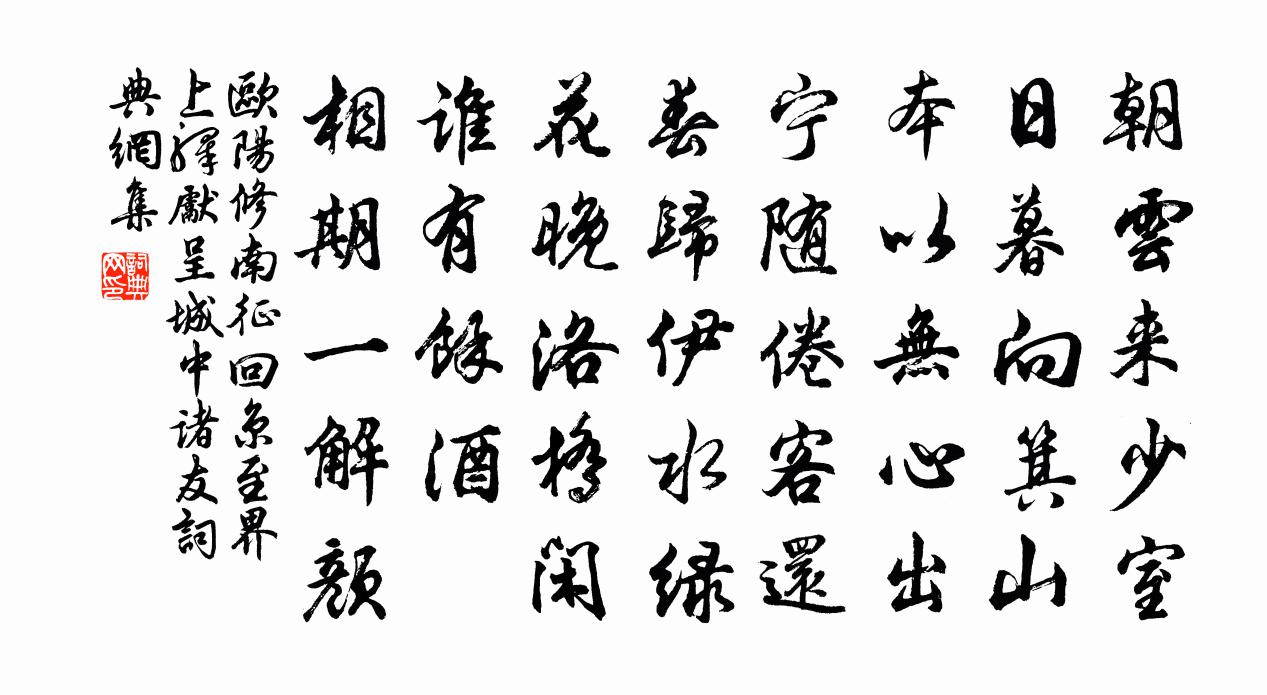 朝雲来少室
日暮向箕山
本以無心出
宁随倦客還
春歸伊水绿
花晚洛橋闲
谁有餘酒
相期一解顔
歐陽修南征回京至界
上驛獻呈城中诸友詞
典網集
詞典
网印